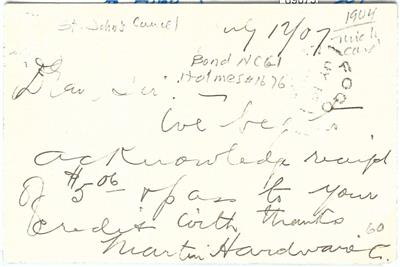 St. John's Cancel
1904
July 12/07
Bond NC61
Holmes #1676
Dear Sir:—
We beg
acknowledge receipt
of $5.06 & pass to your
credit with thanks
Martin Hardware C.
60